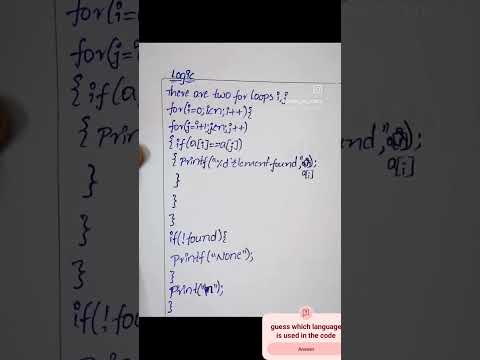 Logic
there are two for loops i,j
for(i=0;i<n;i++){
for(j=i+1;j<n;j++)
{if(a[i]==a[j])
{printf("%d Element found",
a[i]
);
}
}
}
if(!found){
printf("None");
}
print("\n");
}
for(i=
for(j=
{if(a
{print
}
}
}
if(!fou
ound,"
);
a[i]
guess which language
is used in the code
Answer